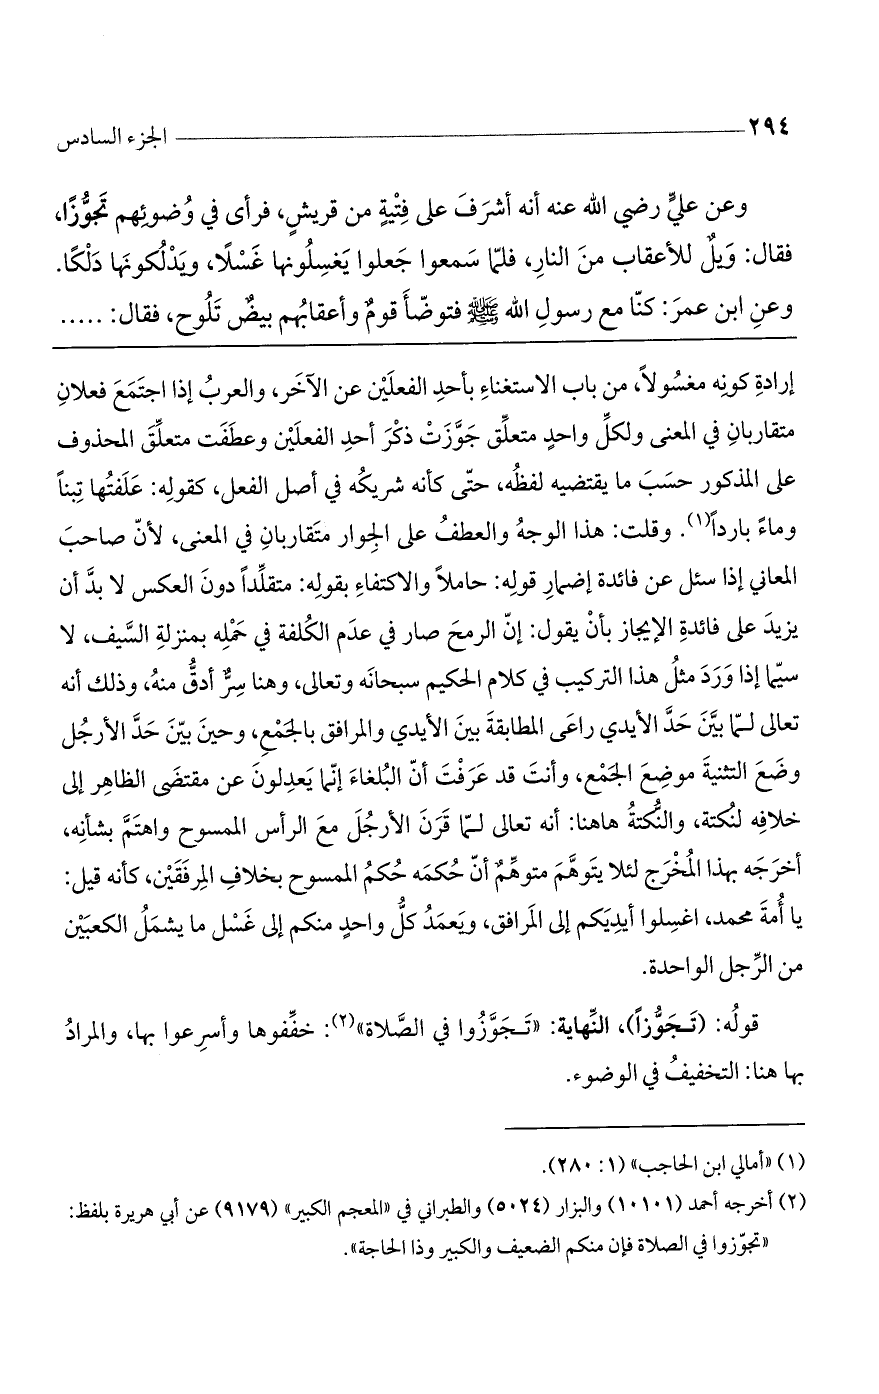 ٢٩٤ الجزء السادس
وعن عليٍّ رضي الله عنه أنه أشرَفَ على فِتْيةٍ من قريشٍ، فرأى في وُضوئِهم تَجوُّزًا،
فقال: وَيلٌ للأعقاب منَ النارِ، فلمّا سَمعوا جَعلوا يَغسِلُونها غَسْلًا، ويَدْلُكونَها دَلْكًا.
وعنِ ابن عمرَ: كنّا مع رسولِ الله ﷺ فتوضّأَ قومٌ وأعقابُهم بيضٌ تَلُوح، فقال: .....
إرادةِ كونِه مغسُولاً، من باب الاستغناءِ بأحدِ الفعلَيْن عن الآخَر، والعربُ إذا اجتَمَعَ فعلانِ
متقاربانِ في المعنى ولكلِّ واحدٍ متعلِّق جَوَّزَتْ ذكْرَ أحدِ الفعلَيْن وعطَفَت متعلِّقَ المحذوف
على المذكور حسَبَ ما يقتضيه لفظُه، حتّى كأنه شريكُه في أصل الفعل، كقولِه: عَلَفتُها تِبناً
وماءً بارداً(١). وقلت: هذا الوجهُ والعطفُ على الجِوار متَقاربانِ في المعنى، لأنّ صاحبَ
المعاني إذا سئل عن فائدة إضمارِ قولِه: حاملاً والاكتفاءِ بقولِه: متقلِّداً دونَ العكس لا بدَّ أن
يزيدَ على فائدةِ الإيجاز بأنْ يقول: إنّ الرمحَ صار في عدَم الكُلفة في حَمْلِه بمنزلةِ السَّيف، لا
سيّما إذا وَرَدَ مثلُ هذا التركيب في كلام الحكيم سبحانَه وتعالى، وهنا سِرٌّ أدقُّ منهُ، وذلك أنه
تعالى لـمّا بيَّنَ حَدَّ الأيدي راعَى المطابقةَ بينَ الأيدي والمرافق بالجَمْعِ، وحينَ بيّنَ حَدَّ الأرجُل
وضَعَ التثنيةَ موضِعَ الجَمْع، وأنتَ قد عَرَفْتَ أنّ البُلغاءَ إنّما يَعدِلونَ عن مقتضَى الظاهِر إلى
خلافِه لنُكتة، والنُّكتةُ هاهنا: أنه تعالى لـمّا قرَنَ الأرجُلَ معَ الرأس الممسوح واهتَمَّ بشأنِه،
أخرَجَه بهذا المُخْرَج لئلا يتَوهَّمَ متوهِّمٌ أنّ حُكمَه حُكمُ الممسوح بخلافِ المِرفَقَيْن، كأنه قيل:
يا أُمةَ محمد، اغسِلوا أيدِيَكم إلى المَرافق، ويَعمَدُ كلُّ واحدٍ منكم إلى غَسْل ما يشمَلُ الكعبَيْن
من الرِّجل الواحدة.
قولُه: (تَـجَوُّزاً)، النِّهاية: «تَـجَوَّزُوا في الصَّلاة»(٢): خفِّفوها وأسرِعوا بها، والمرادُ
بها هنا: التخفيفُ في الوضوء.
(١) «أمالي ابن الحاجب» (١: ٢٨٠).
(٢) أخرجه أحمد (١٠١٠١) والبزار (٥٠٢٤) والطبراني في «المعجم الكبير» (٩١٧٩) عن أبي هريرة بلفظ:
«تجوّزوا في الصلاة فإن منكم الضعيف والكبير وذا الحاجة».